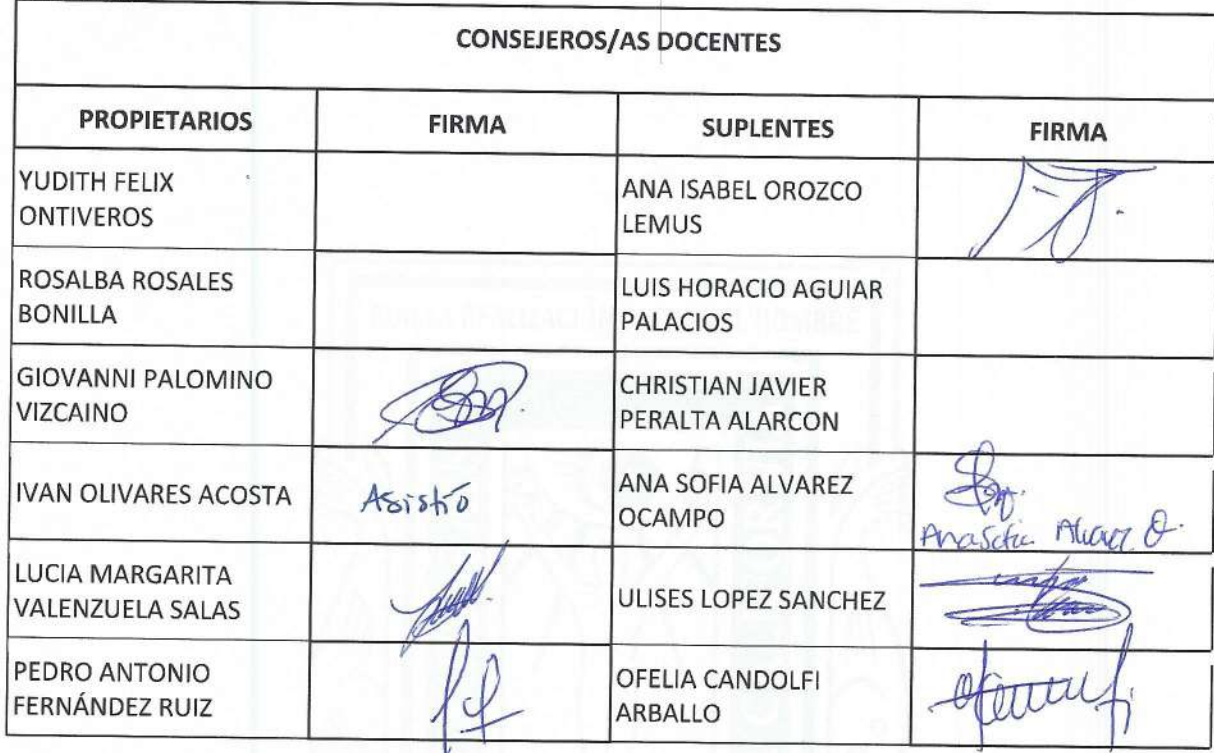 CONSEJEROS/AS DOCENTES
PROPIETARIOS FIRMA SUPLENTES FIRMA
YUDITH FELIX
ONTIVEROS
ANA ISABEL OROZCO
LEMUS
ROSALBA ROSALES
BONILLA
LUIS HORACIO AGUIAR
PALACIOS
GIOVANNI PALOMINO
VIZCAINO
CHRISTIAN JAVIER
PERALTA ALARCON
IVAN OLIVARES ACOSTA
Asistió
ANA SOFIA ALVAREZ
OCAMPO
Ana Sofia Alvarez O.
LUCIA MARGARITA
VALENZUELA SALAS
ULISES LOPEZ SANCHEZ
PEDRO ANTONIO
FERNÁNDEZ RUIZ
OFELIA CANDOLFI
ARBALLO